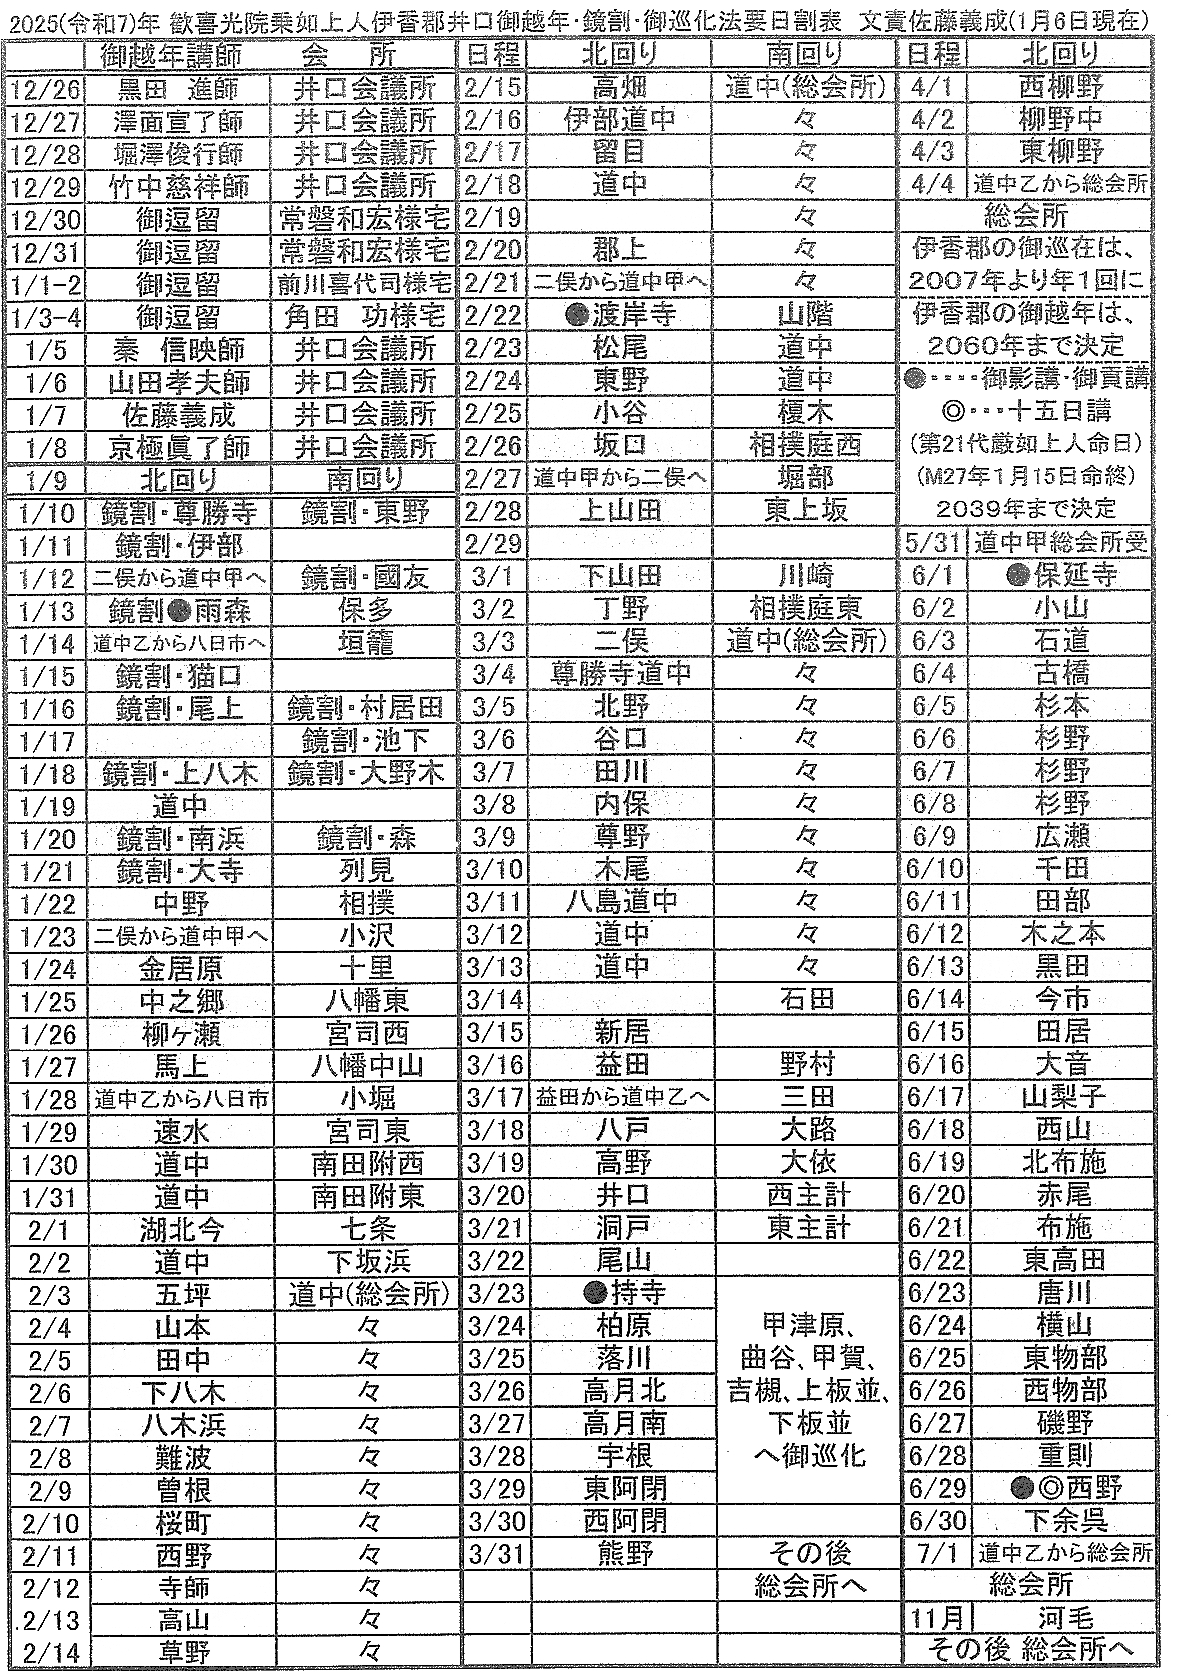 2025(令和7)年 歓喜光院乗如上人伊香郡井口御越年・鏡割・御巡化法要日割表 文責佐藤義成(1月6日現在)
御越年講師 会 所 日程 北回り 南回り 日程 北回り
12/26 黒田 進師 井口会議所 2/15 高畑 道中(総会所) 4/1 西柳野
12/27 澤面宣了師 井口会議所 2/16 伊部道中 々 4/2 柳野中
12/28 堀澤俊行師 井口会議所 2/17 留目 々 4/3 東柳野
12/29 竹中慈祥師 井口会議所 2/18 道中 々 4/4 道中乙から総会所
12/30 御逗留 常磐和宏様宅 2/19 々 総会所
12/31 御逗留 常磐和宏様宅 2/20 郡上 々 伊香郡の御巡在は、
1/1-2 御逗留 前川喜代司様宅 2/21 二俣から道中甲へ 々 2007年より年1回に
1/3-4 御逗留 角田 功様宅 2/22 ●渡岸寺 山階 伊香郡の御越年は、
1/5 秦 信映師 井口会議所 2/23 松尾 道中 2060年まで決定
1/6 山田孝夫師 井口会議所 2/24 東野 道中 ●・・・・御影講・御貢講
1/7 佐藤義成 井口会議所 2/25 小谷 榎木 ◎・・・十五日講
1/8 京極眞了師 井口会議所 2/26 坂口 相撲庭西 (第21代厳如上人命日)
1/9 北回り 南回り 2/27 道中甲から二俣へ 堀部 (M27年1月15日命終)
1/10 鏡割・尊勝寺 鏡割・東野 2/28 上山田 東上坂 2039年まで決定
1/11 鏡割・伊部 2/29 5/31 道中甲総会所受
1/12 二俣から道中甲へ 鏡割・國友 3/1 下山田 川崎 6/1 ●保延寺
1/13 鏡割●雨森 保多 3/2 丁野 相撲庭東 6/2 小山
1/14 道中乙から八日市へ 垣籠 3/3 二俣 道中(総会所) 6/3 石道
1/15 鏡割・猫口 3/4 尊勝寺道中 々 6/4 古橋
1/16 鏡割・尾上 鏡割・村居田 3/5 北野 々 6/5 杉本
1/17 鏡割・池下 3/6 谷口 々 6/6 杉野
1/18 鏡割・上八木 鏡割・大野木 3/7 田川 々 6/7 杉野
1/19 道中 3/8 内保 々 6/8 杉野
1/20 鏡割・南浜 鏡割・森 3/9 尊野 々 6/9 広瀬
1/21 鏡割・大寺 列見 3/10 木尾 々 6/10 千田
1/22 中野 相撲 3/11 八島道中 々 6/11 田部
1/23 二俣から道中甲へ 小沢 3/12 道中 々 6/12 木之本
1/24 金居原 十里 3/13 道中 々 6/13 黒田
1/25 中之郷 八幡東 3/14 石田 6/14 今市
1/26 柳ヶ瀬 宮司西 3/15 新居 6/15 田居
1/27 馬上 八幡中山 3/16 益田 野村 6/16 大音
1/28 道中乙から八日市 小堀 3/17 益田から道中乙へ 三田 6/17 山梨子
1/29 速水 宮司東 3/18 八戸 大路 6/18 西山
1/30 道中 南田附西 3/19 高野 大依 6/19 北布施
1/31 道中 南田附東 3/20 井口 西主計 6/20 赤尾
2/1 湖北今 七条 3/21 洞戸 東主計 6/21 布施
2/2 道中 下坂浜 3/22 尾山 6/22 東高田
2/3 五坪 道中(総会所) 3/23 ●持寺 6/23 唐川
2/4 山本 々 3/24 柏原 甲津原、 6/24 横山
2/5 田中 々 3/25 落川 曲谷、甲賀、 6/25 東物部
2/6 下八木 々 3/26 高月北 吉槻、上板並、 6/26 西物部
2/7 八木浜 々 3/27 高月南 下板並 6/27 磯野
2/8 難波 々 3/28 宇根 へ御巡化 6/28 重則
2/9 曽根 々 3/29 東阿閉 6/29 ●◎西野
2/10 桜町 々 3/30 西阿閉 6/30 下余呉
2/11 西野 々 3/31 熊野 その後 7/1 道中乙から総会所
2/12 寺師 々 総会所へ 総会所
2/13 高山 々 11月 河毛
2/14 草野 々 その後 総会所へ